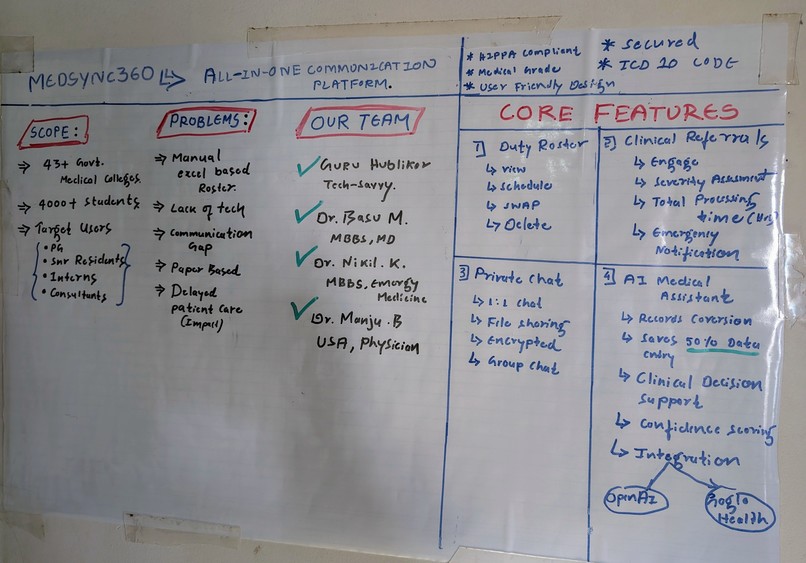 MEDSYNC360 ↳ ALL-IN-ONE COMMUNICATION
PLATFORM.
* HIPPA Compliant
* Medical Grade
* User Friendly Design
* Secured
* ICD 10 CODE
SCOPE:
⇒ 43+ Govt.
Medical Colleges.
⇒ 4000+ students
⇒ Target Users
• PG
• Snr Residents
• Interns
• Consultants
PROBLEMS:
⇒ Manual
excel based
Roster.
⇒ Lack of tech
⇒ Communication
Gap
⇒ Paper Based
⇒ Delayed
patient care
(Impact)
OUR TEAM
✓ GURU Hublikar
Tech-Savvy.
✓ Dr. Basu M.
MBBS, MD
✓ Dr. Nikil. K.
MBBS, Emergy
Medicine
✓ Dr. Manju. B
USA, Physician
CORE FEATURES
1] Duty Roster
↳ view
↳ schedule
↳ SWAP
↳ Delete
2] Clinical Referrals
↳ Engage
↳ Severity Assesment
↳ Total Processing
time (Hrs)
↳ Emergency
Notification
3] Private Chat
↳ 1:1 chat
↳ File sharing
↳ Encrypted
↳ Group Chat
4] AI Medical
Assistant
↳ Records Coversion
↳ Saves 50% Data
entry
↳ Clinical Decision
Support
↳ Confidence scoring
↳ Integration
OpenAI
Health